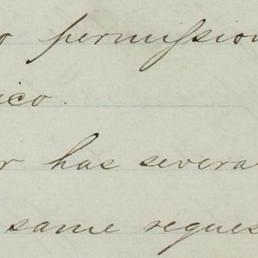 permission
ico.
r has severa
same reques